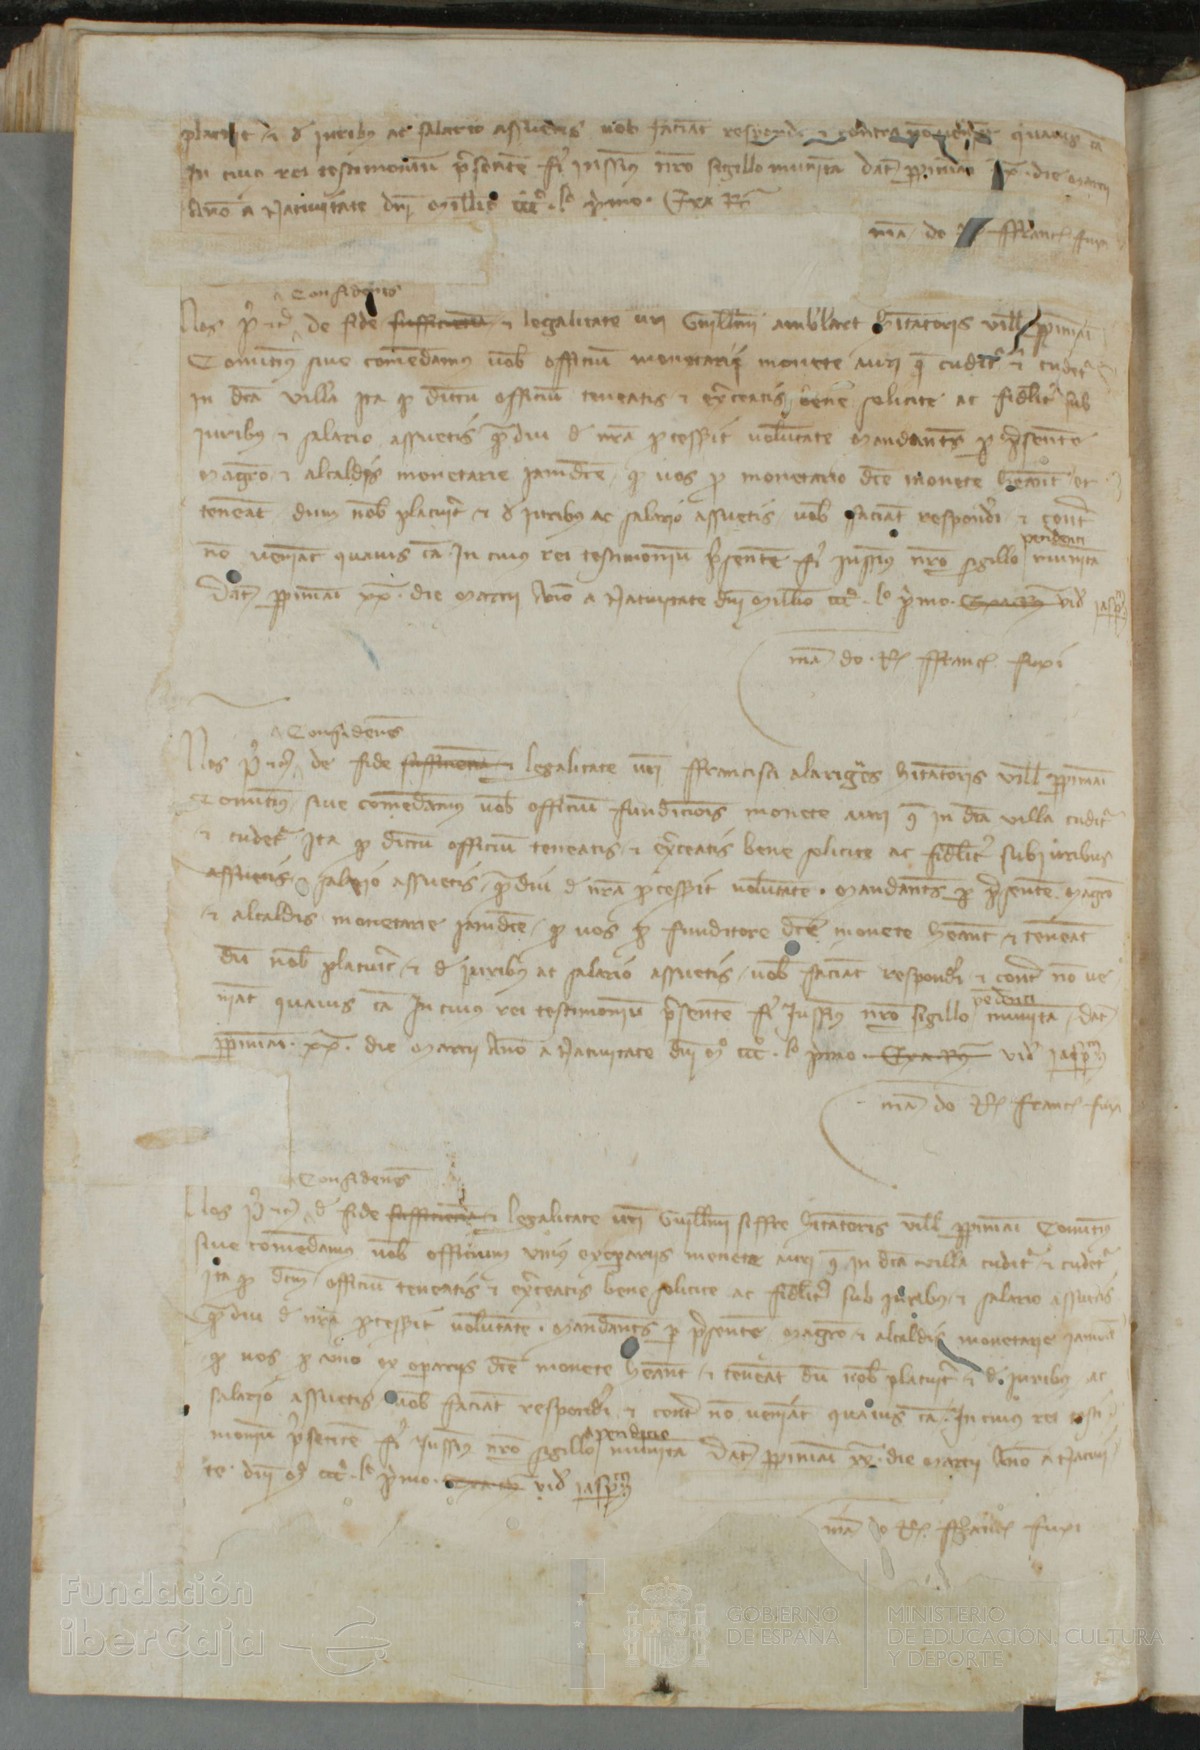 placuit et de iuribus ac salario assuetis vob faciat responderi et contra no veniat quavis ca
In cuius rei testimonium presente fi iussim nro sigillo munita dat ppiniani xx die marcii
Anno a Nativitate dni millio ccc l primo
ma do R franc fuxi
Confidentes
Nos P etc de fide sufficiencia et legalitate vri Guillmi habitatoris ville ppiniani
Comittim sive comendamus vob officiu monetarii monete auri que cudit et cudet
in dca villa Ita q dictu officiu teneatis et exerceatis bene solicite ac fideliter sub
iuribus et salario assuetis qdiu de nra pcesserit voluntate mandantes p presente
magro et alcaldis monetarie iamdce q vos pro monetario dce monete heant et
teneat dum nob placuit et de iuribus ac salario assuetis vob faciat responderi et cont
no veniat quavis ca In cuius rei testimoniu presente fi iussim nro sigillo pendenti munita
Dat ppiniani xx die marcii Anno a Nativitate dni millio ccc lo primo vid
ma do R franc fuxi
Confidentes
Nos P etc de fide sufficiencia et legalitate vri ffrancisci habitatoris ville ppiniani
Comittim sive comendamus vob officiu fundicionis monete auri que in dca villa cudit
et cudet Ita q dictu officiu teneatis et exerceatis bene solicite ac fideliter sub iuribus
assuetis et salario assuetis qdiu de nra pcesserit voluntate mandantes p presente magro
et alcaldis monetarie iamdce q vos p funditore dce monete heant et teneat
du nob placuit et de iuribus ac salario assuetis vob faciat responderi et cont no ve
niat quavis ca In cuius rei testimoniu presente fi iussim nro sigillo pendenti munita dat
ppiniani xx die marcii Anno a Nativitate dni mo ccc lo primo vid
ma do R franc fuxi
Confidentes
Nos P etc de fide sufficiencia et legalitate vri Guillmi habitatoris ville ppiniani Comittim
sive comendamus vob officium unius ex operariis monete auri que in dca villa cudit et cudet
Ita q dcm officiu teneatis et exerceatis bene solicite ac fideliter sub iuribus et salario assuetis
qdiu de nra pcesserit voluntate mandantes p presente magro et alcaldis monetarie iamdce
q vos p uno ex operariis dce monete heant et teneat du nob placuit et de iuribus ac
salario assuetis vob faciat responderi et cont no veniat quavis ca In cuius rei testi
moniu presente fi iussim nro sigillo apendicio munita Dat ppiniani xx die marcii Anno a Nativi
te dni mo ccc lo primo vid
ma do R ffranc fuxi
Fundación
iberCaja
GOBIERNO
DE ESPAÑA
MINISTERIO
DE EDUCACIÓN, CULTURA
Y DEPORTE